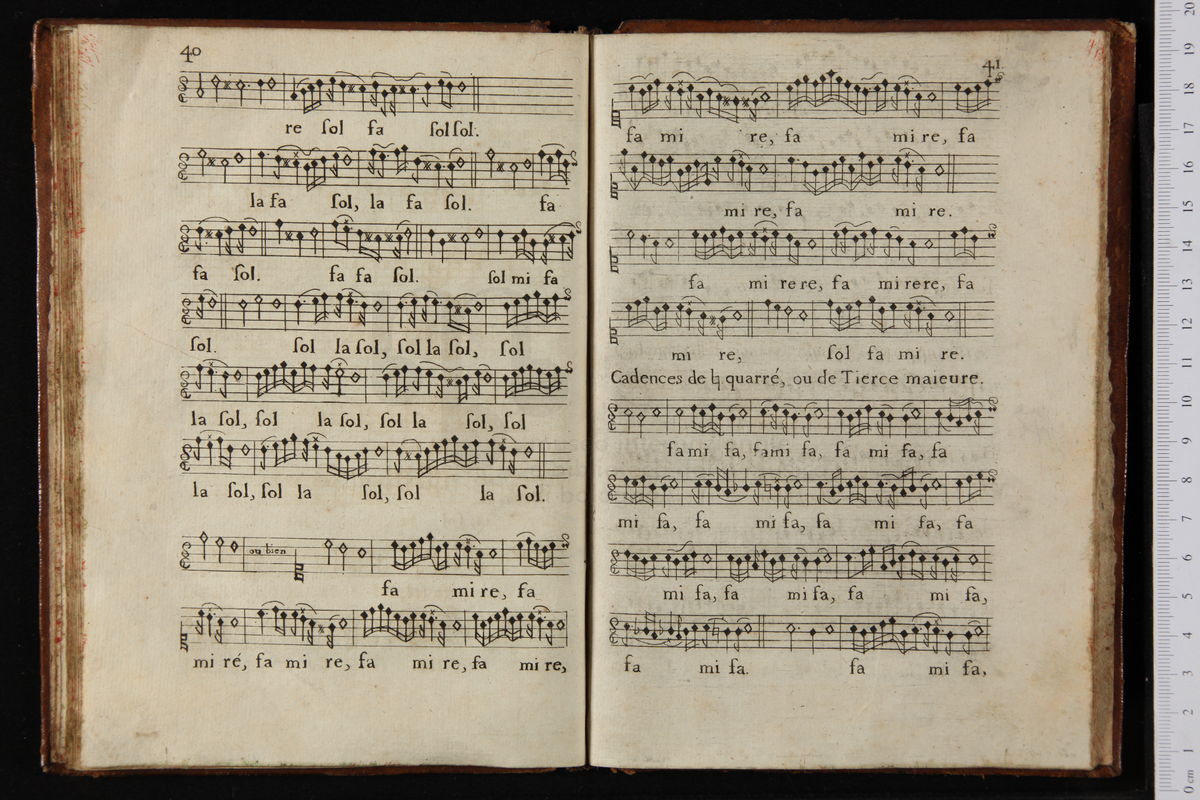 40
re ſol fa ſol ſol.
la fa ſol, la fa ſol. fa
fa ſol. fa fa ſol. ſol mi fa
ſol. ſol la ſol, ſol la ſol, ſol
la ſol, ſol la ſol, ſol la ſol, ſol
la ſol, ſol la ſol, ſol la ſol.
ou bien
fa mi re, fa
mi ré, fa mi re, fa mi re, fa mi re,
41
fa mi re, fa mi re, fa
mi re, fa mi re.
fa mi re re, fa mi re re, fa
mi re, ſol fa mi re.
Cadences de ♮ quarré, ou de Tierce maieure.
fa mi fa, fa mi fa, fa mi fa, fa
mi fa, fa mi fa, fa mi fa, fa
mi fa, fa mi fa, fa mi fa,
fa mi fa. fa mi fa,
0 cm 1 2 3 4 5 6 7 8 9 10 11 12 13 14 15 16 17 18 19 20